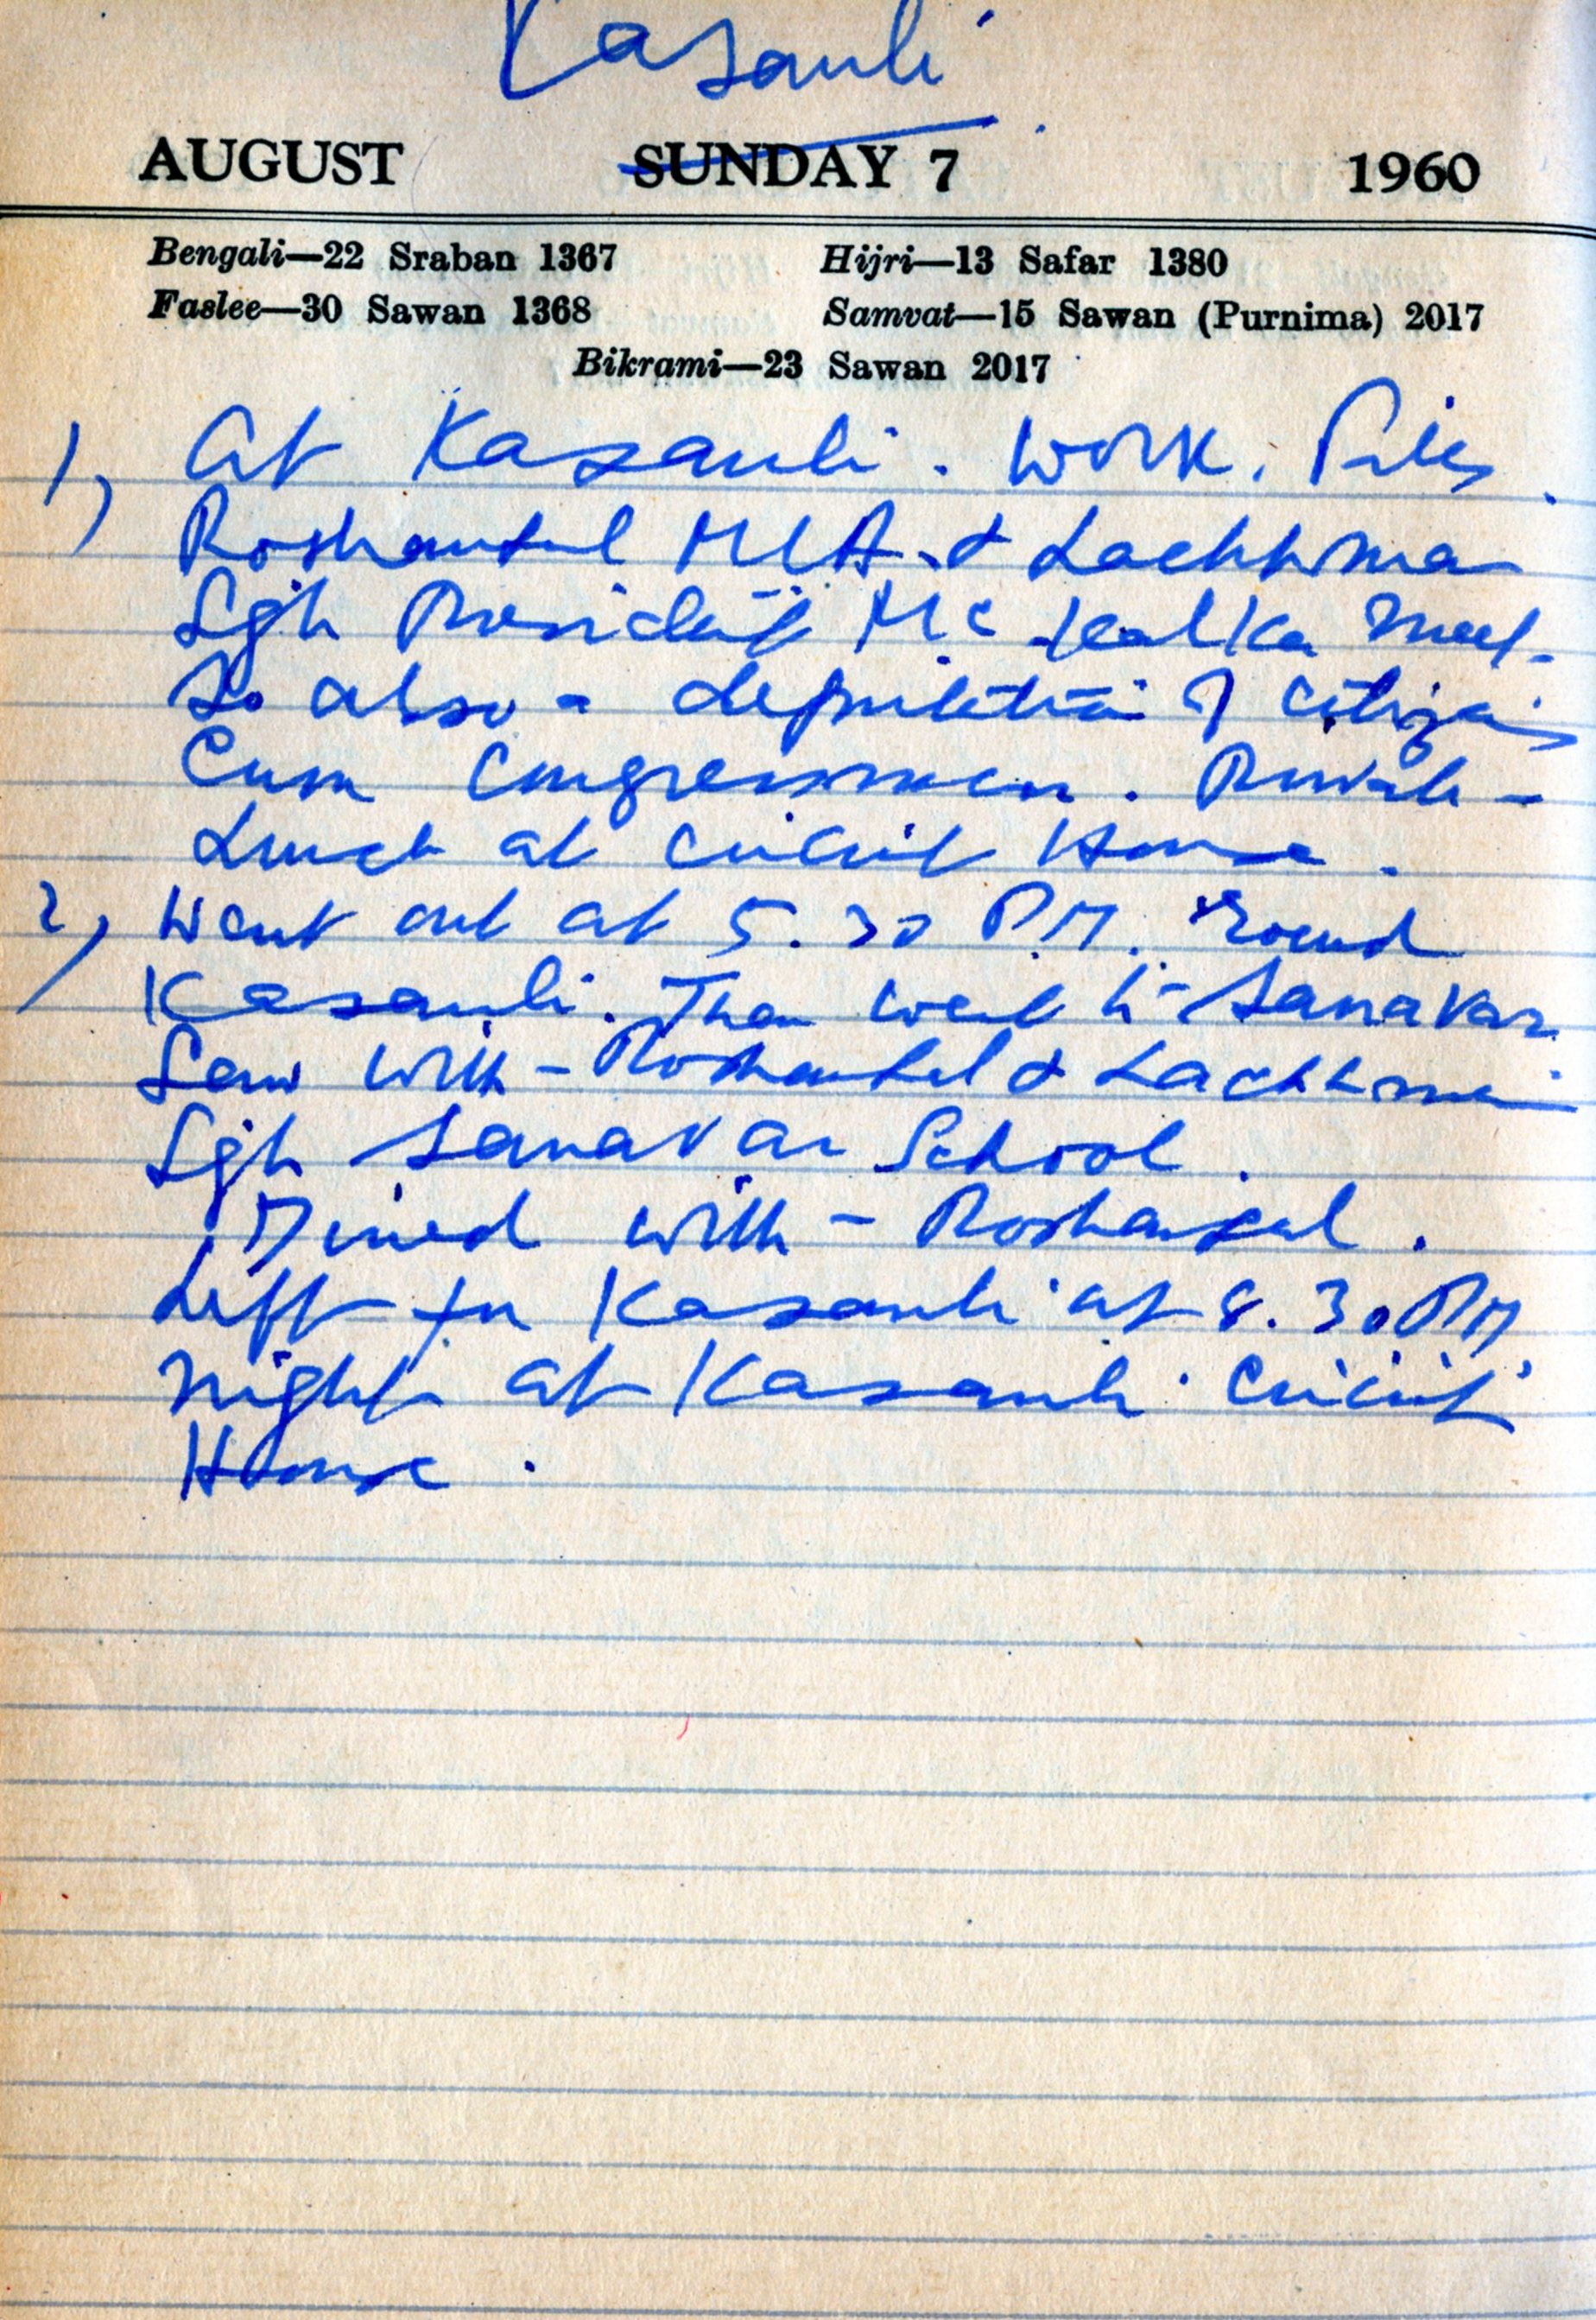 Kasauli
AUGUST SUNDAY 7 1960
Bengali—22 Sraban 1367 Hijri—13 Safar 1380
Faslee—30 Sawan 1368 Samvat—15 Sawan (Purnima) 2017
Bikrami—23 Sawan 2017
1) At Kasauli. Work. Files.
Roshanlal MLA. & Lachhman
Sgh President MC Kalka met.
So also a deputation of citizens
Cum Congressmen. Private
Lunch at Circuit House.
2) Went out at 5.30 P.M. round
Kasauli. Then went to Sanavar
Saw with Roshanlal & Lachhman
Sgh Sanavar School.
Dined with Roshanlal.
Left for Kasauli at 8.30 PM
Night at Kasauli Circuit
House.